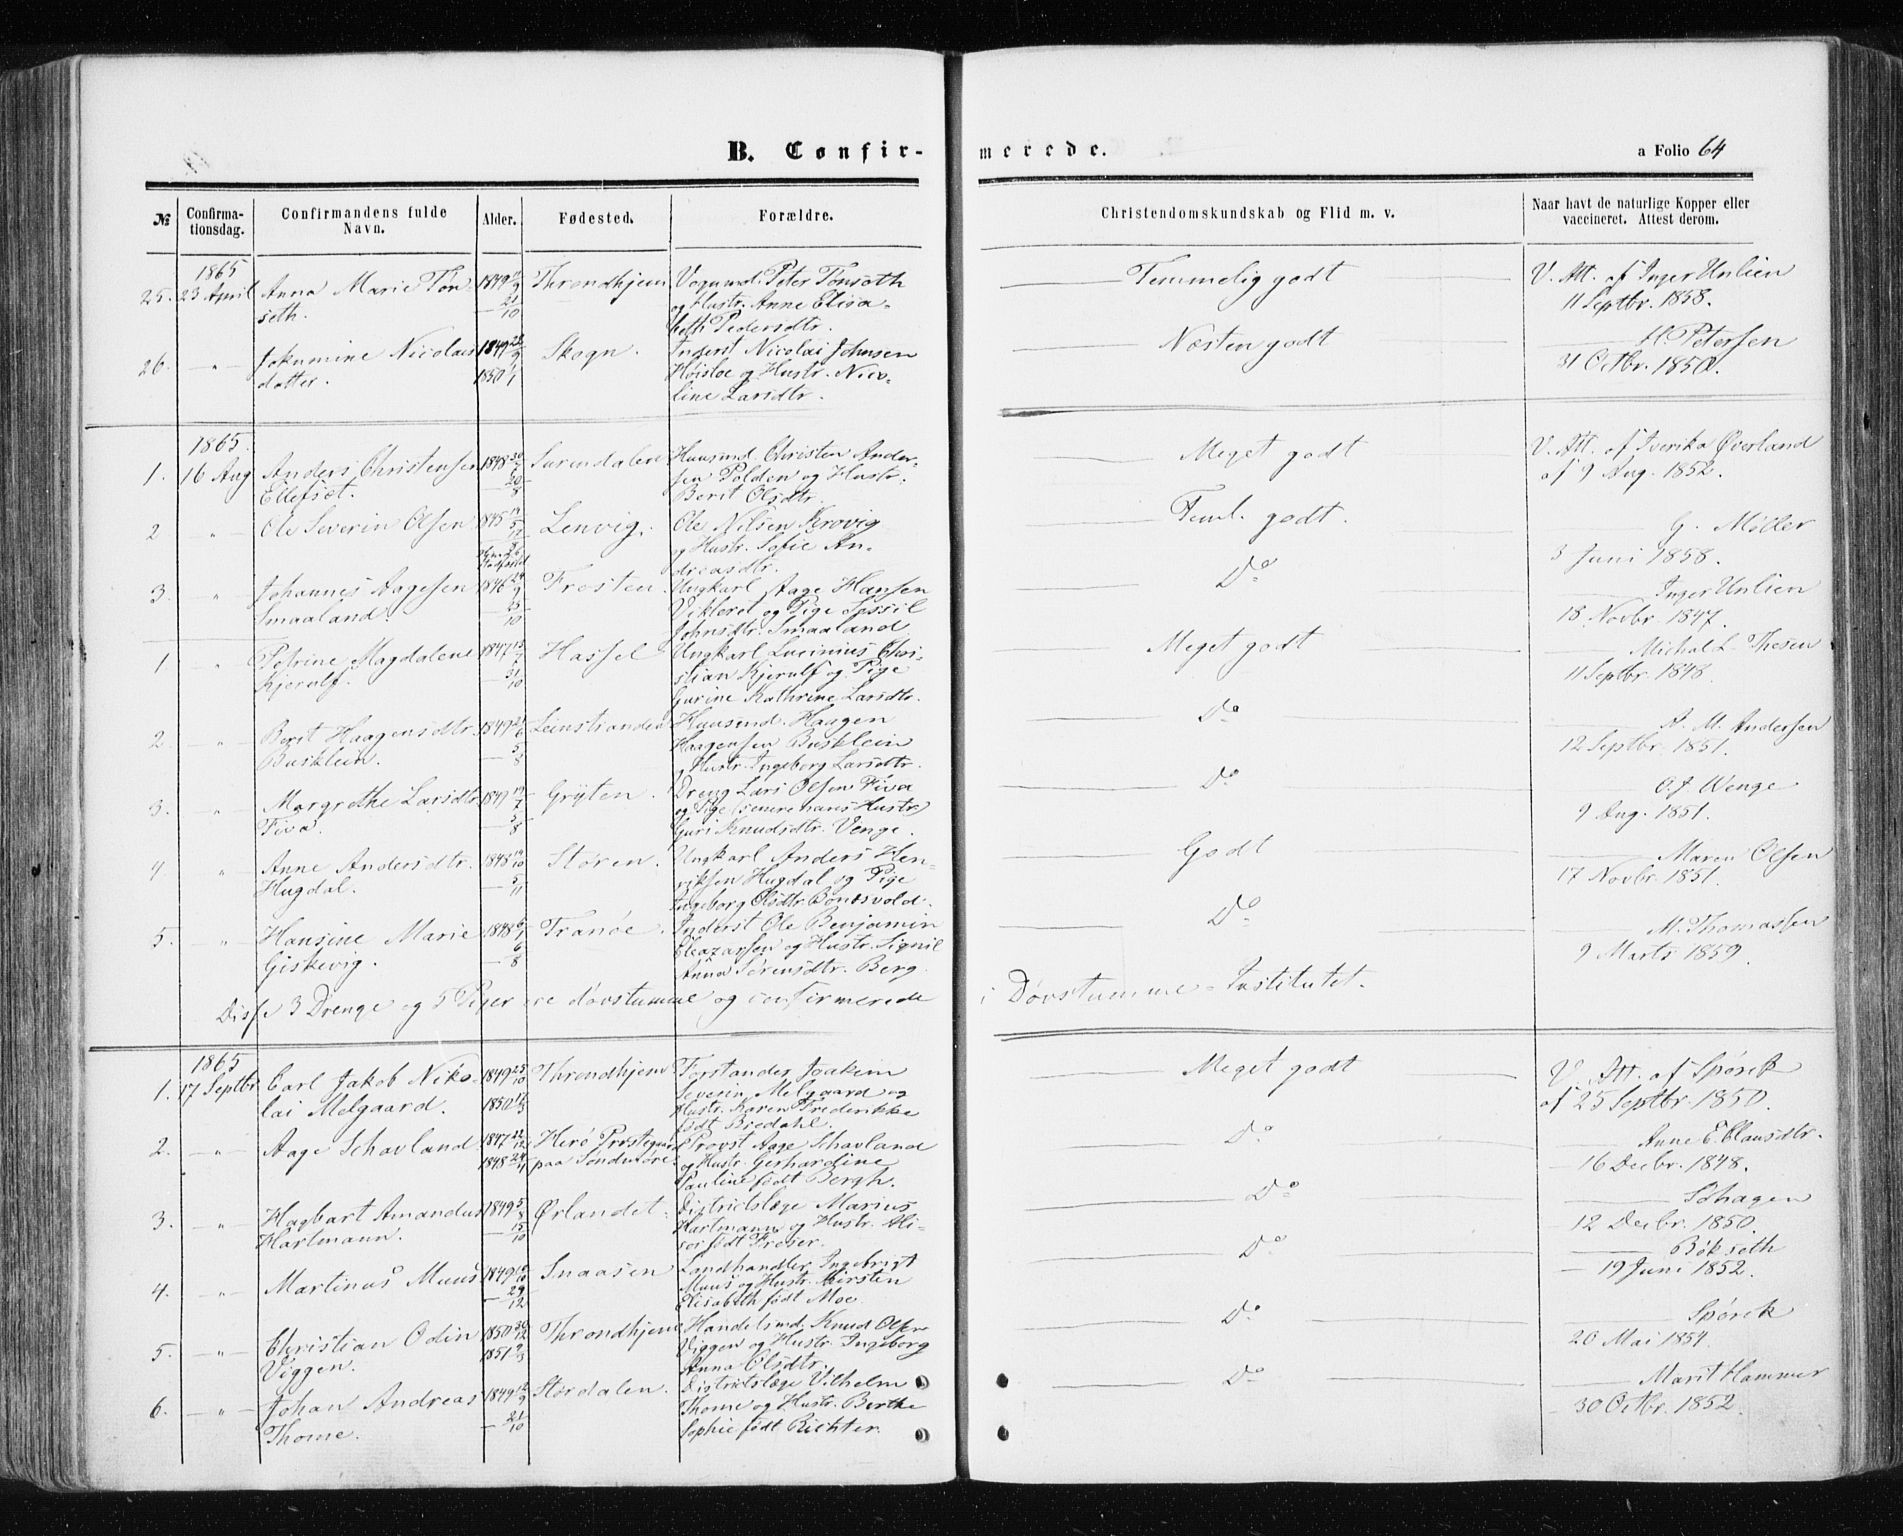 B. Confir-
merede.
a Folio 64
№
Confirma-
tionsdag.
Confirmandens fulde
Navn.
Alder.
Fødested.
Forældre.
Christendomskundskab og Flid m. v.
Naar havt de naturlige Kopper eller
vaccineret. Attest derom.
1865
25. 23 April Anna Marie Tøn- 1849 Throndhjem Vognmd. Peter Tønseth Temmelig godt V. Att. af Inger Unlien
seth. og Hustr. Anne Elisa- 11 Septbr. 1858.
beth Pedersdtr.
26. -"- Jokumine Nicolais 1849 Skogn. Inderst Nicolai Johnsen Næsten godt H. Petersen
datter. 1850 Høisloe og Hustr. Nico- 31 Octbr. 1850.
line Larsdtr.
1865.
1. 16 Aug Anders Christensen 1848 Surendalen Huusmd. Christen Ander- Meget godt V. Att. af Iverika Øverland
Ellefsæt. sen Polden og Hustr. af 9 Aug. 1852.
Berit Olsdtr.
2 -"- Ole Severin Olsen 1845 Lenvig. Ole Nilsen Krovig Teml. godt. G. Møller
og Hustr. Sofie An- 3 Juni 1858.
dreasdtr.
3. " Johannes Aagesen 1846 Frosten. Ungkarl Aage Hansen Do Inger Unlien
Smaaland. Vikleret og Pige Sissil 18. Novbr. 1847.
Johnsdtr. Smaaland
1 " Petrine Magdalene 1847 Hassel Ungkarl Lucinius Chri- Meget godt Michal L. Thesen
Kjerulf. stian Kjerulf og Pige 11 Septbr. 1848.
Gurine Kathrine Larsdtr.
2. -"- Berit Haagensdtr. 1849 Leinstranden Huusmd. Haagen Do A. M. Andersen
Busklein. Haagensen Busklein 12 Septbr. 1851.
og Hustr. Ingeborg Larsdtr.
3. -"- Margrethe Larsdtr. 1849 Gryten. Dreng Lars Olsen Fiva Do O. J. Wenge
Fiva. og Pige (senere hans Hustr.) 9 Aug. 1851.
Guri Knudsdtr. Venge.
4. " Anne Andersdtr. 1848 Støren. Ungkarl Anders Hen- Godt Maren Olsen
Hugdal. riksen Hugdal og Pige 17 Novbr. 1851.
Ingeborg Olsdtr. Bonesvold.
5. " Hansine Marie 1848 Tranöe. Inderst Ole Benjamin Do M. Thomassen
Giskevig. Eleazarsen og Hustr. Signil 9 Marts 1859.
Anna Sørensdtr. Berg.
Disse 3 Drenge og 5 Piger ere døvstumme og confirmerede i Døvstumme-Institutet.
1865
1. 17 Septbr. Carl Jakob Niko- 1849 Throndhjem Forstander Joakim Meget godt V. Att. af Spørck
lai Melgaard. 1850 Severin Melgaard og af 25 Septbr. 1850.
Hustr. Karen Frederikke
født Bredahl.
2. -"- Aage Schavland 1847 Herö Præstegaard Provst Aage Schavland Do Anne E. Clausdtr.
1848 paa Søndmøre. og Hustr. Gerhardine - 16 Decbr. 1848.
Pauline født Bergh.
3. -"- Hagbart Amandus 1849 Ørlandet. Districtslæge Marius Do Sohagen
Hartmann. Hartmann og Hustr. Ali- 12 Decbr. 1850.
født Froser.
4. -"- Martinus Muus 1849 Snaasen Landhandler Ingebrigt Do Bökseth
Muus og Hustr. Kirsten - 19 Juni 1852.
Elisabeth født Moe
5. -"- Christian Odin 1850 Throndhjem Handelsmd. Knud Olsen Do Spørck
Viggen. 1851 Viggen og Hustr. Ingeborg 20 Mai 1854.
Anna Olsdtr.
6. -"- Johan Andreas 1849 Stördalen. Districtslæge Vilhelm Do Marit Hammer
Thome. Thome og Hustr. Berthe - 30 Octbr. 1852.
Sophie født Richter.